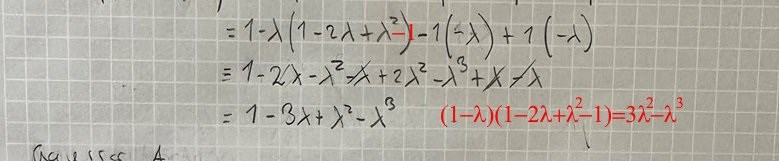 = 1-λ(1-2λ+λ²-1)-1(-λ)+1(-λ)
= 1-2λ-λ²-λ+2λ²-λ³+λ-λ
= 1-3λ+λ²-λ³ (1-λ)(1-2λ+λ²-1)=3λ²-λ³